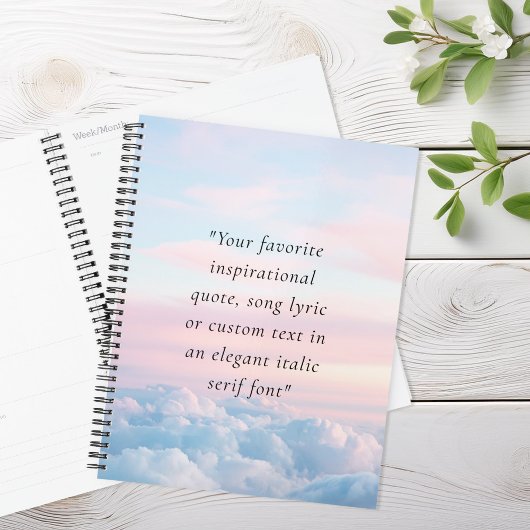 Week/Month
"Your favorite
inspirational
quote, song lyric
or custom text in
an elegant italic
serif font"